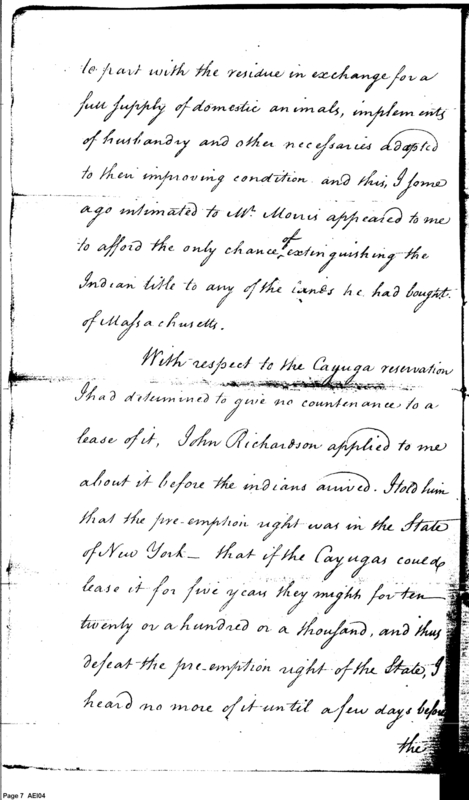 to part with the residue in exchange for a
full supply of domestic animals, implements
of husbandry and other necessaries adapted
to their improving condition and this, I some
ago intimated to Mr. Morris appeared to me
to afford the only chance of extinguishing the
Indian title to any of the lands he had bought
of Massachusetts.
With respect to the Cayuga reservation
I had determined to give no countenance to a
lease of it, John Richardson applied to me
about it before the indians arrived. I told him
that the pre-emption right was in the State
of New York - that if the Cayugas could
lease it for five years they might for ten
twenty or a hundred or a thousand, and thus
defeat the pre-emption right of the State, I
heard no more of it until a few days before
the
Page 7 AEI04